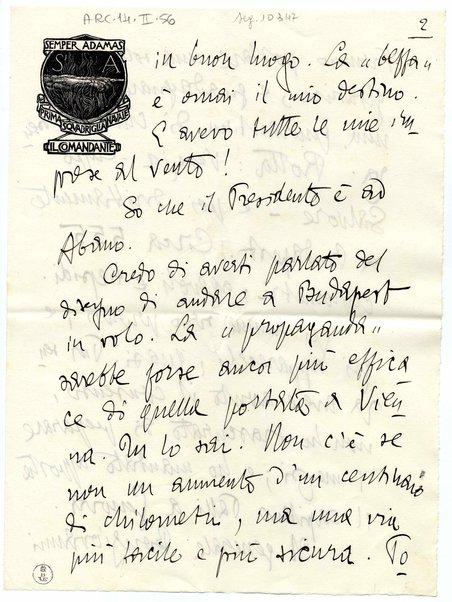 ARC.14.II.56
Seg. 10342
2
SEMPER ADAMAS
S A
PRIMA SQUADRIGLIA NAVALE
IL COMANDANTE
in buon luogo. La "beffa"
è omai il mio destino.
E avevo tutte le mie im
prese al vento!
So che il Presidente è ad
Abano.
Credo di averti parlato del
disegno di andare a Budapest
in volo. La "propaganda"
sarebbe forse ancor più effica
ce di quella portata a Vien
na. Tu lo sai. Non c'è se
non un aumento d'un centinaio
di chilometri, ma una via
più facile e più sicura. To